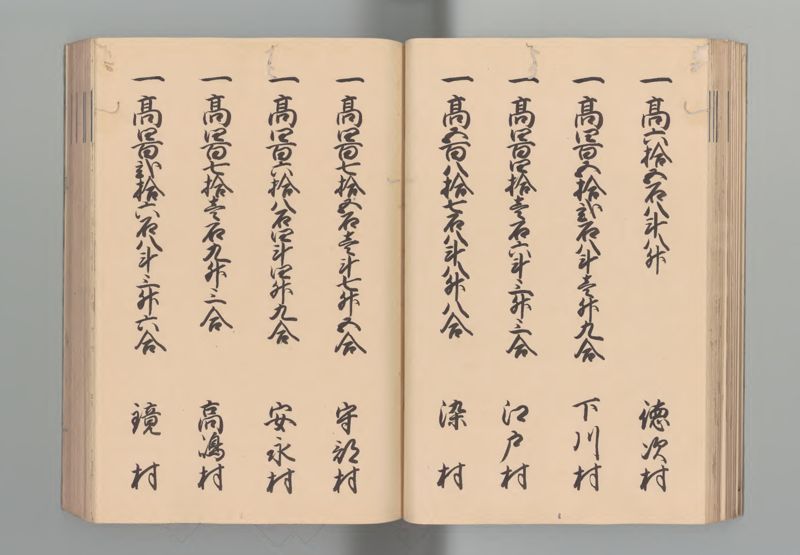 一高六拾五石八斗八升 徳次村
一高四百五拾弐石八斗壱升九合 下川村
一高四百四拾壱石六斗三升三合 江戸村
一高五百八拾七石八斗八升八合 染村
一高四百七拾五石壱斗七升五合 守部村
一高四百六拾八石四斗四升九合 安永村
一高四百七拾壱石九升三合 高嶋村
一高四百弐拾六石八斗三升六合 鏡村